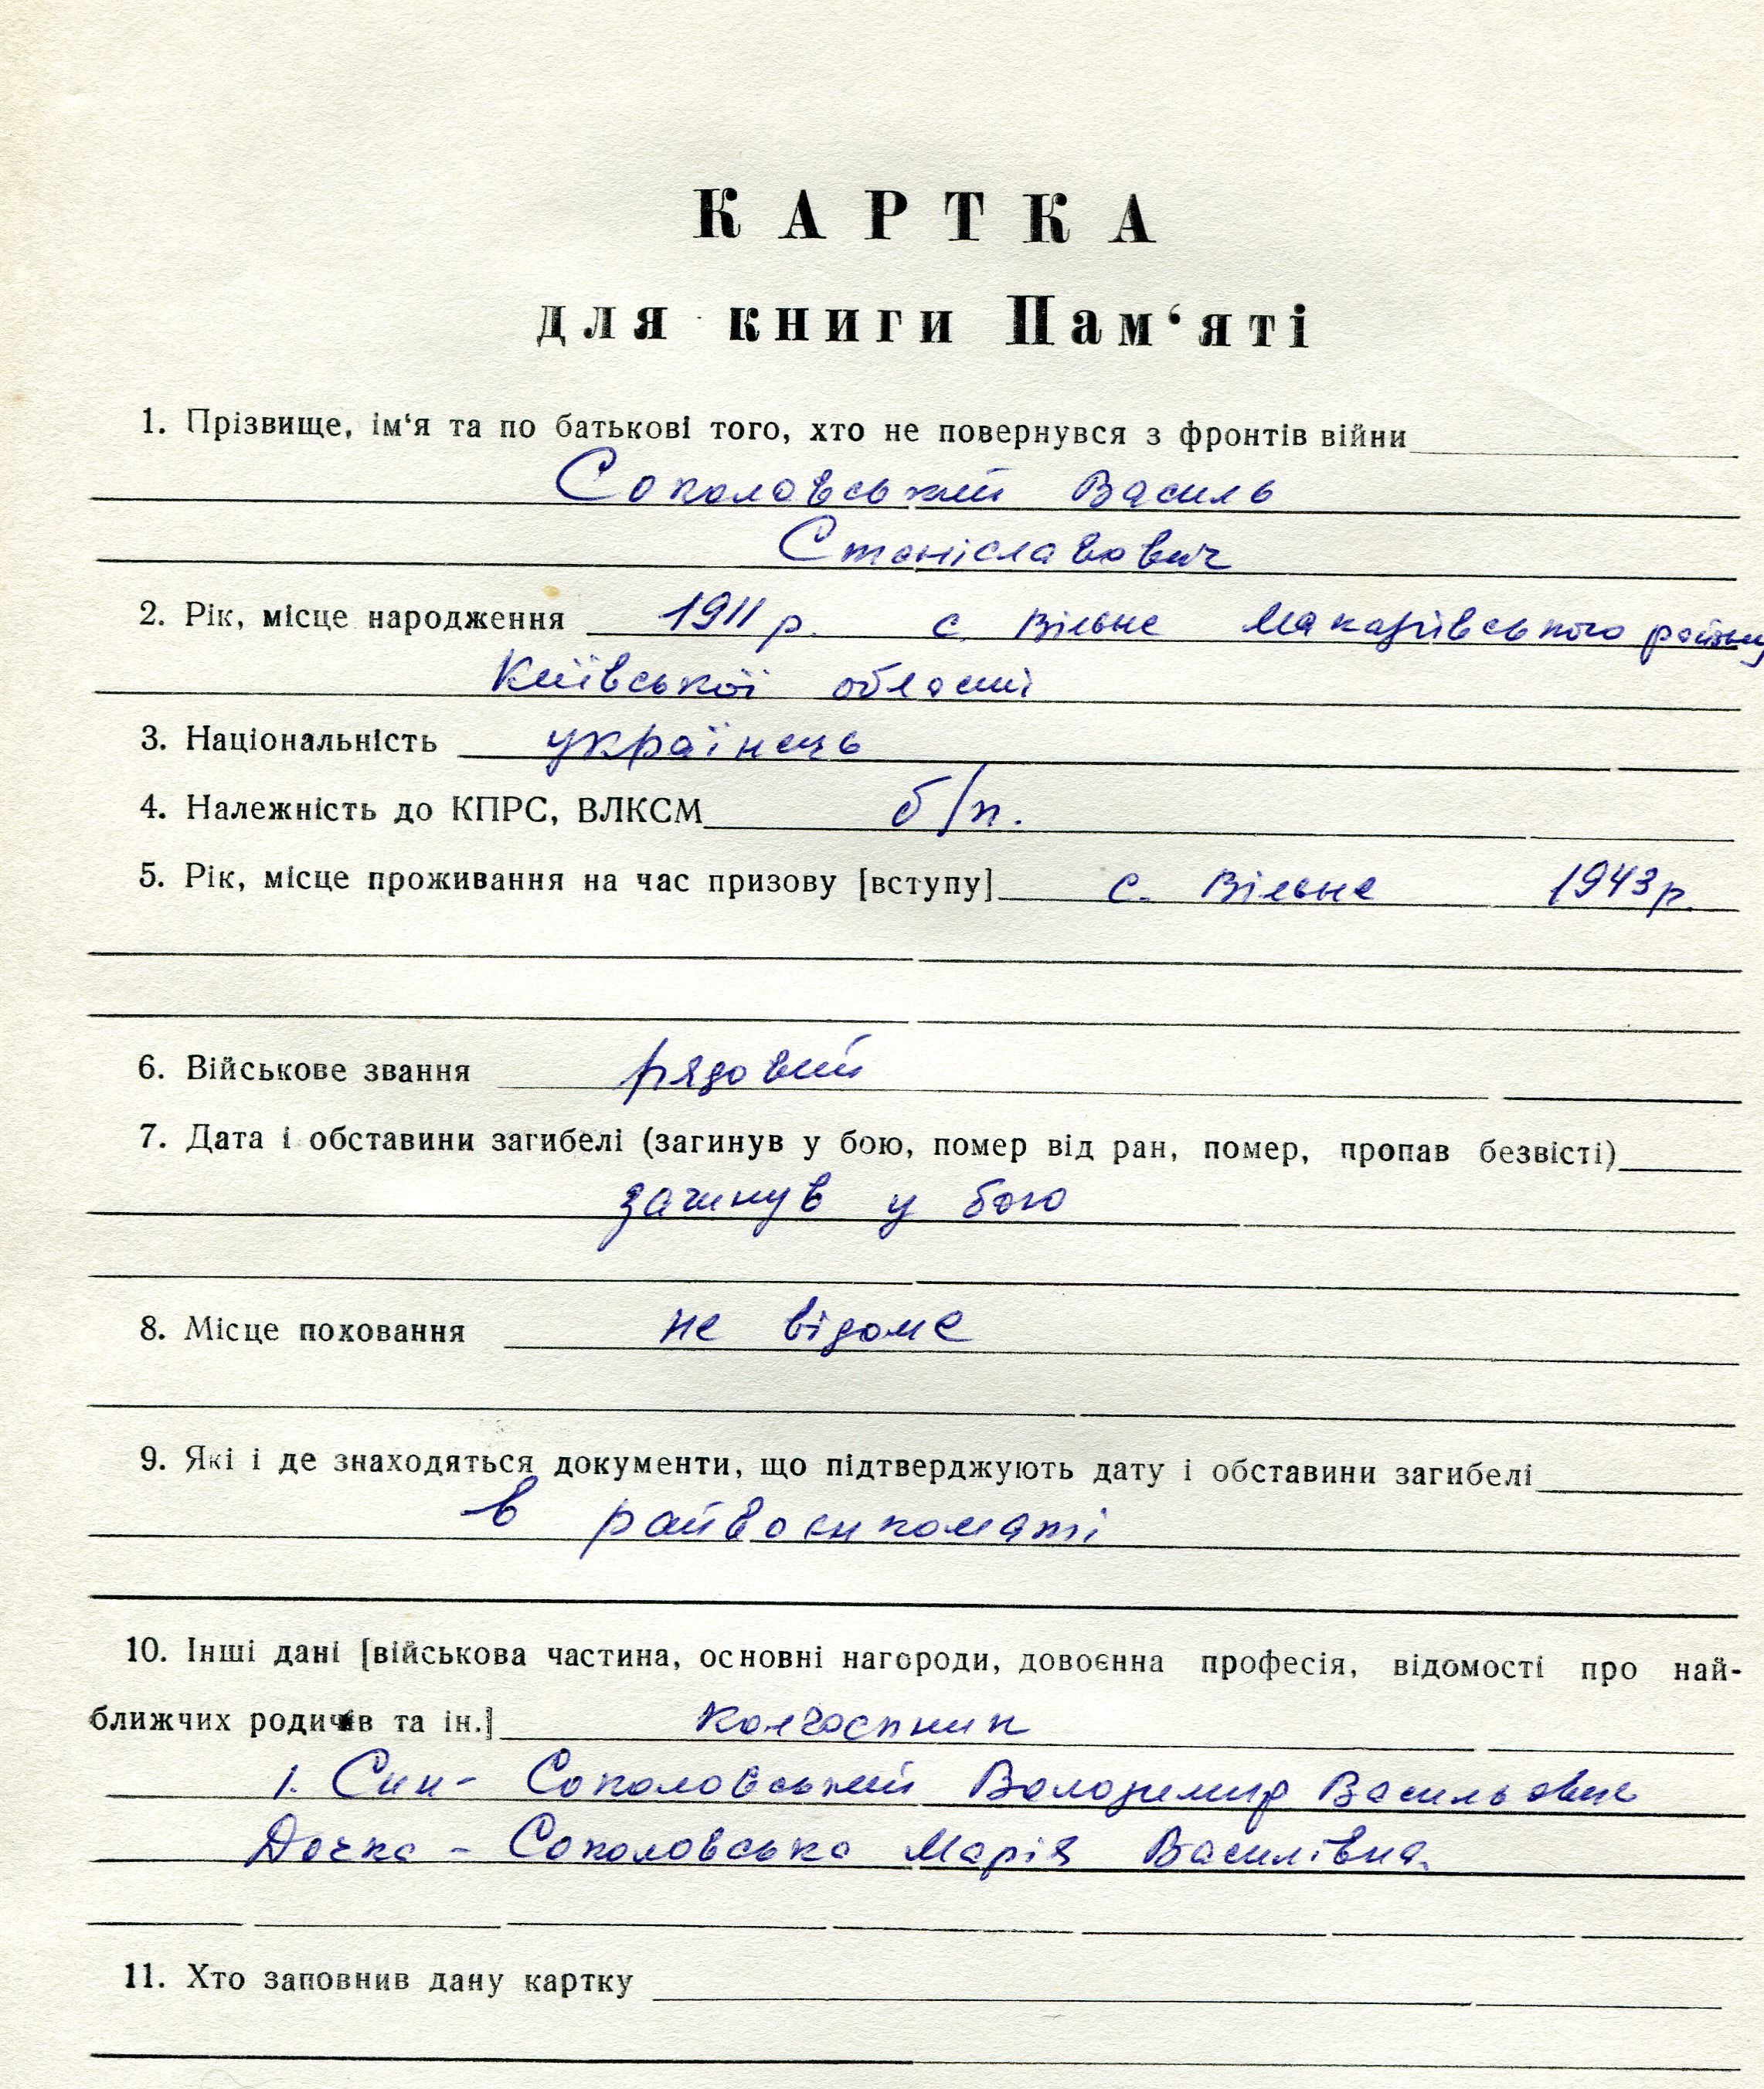 КАРТКА
для книги Пам‘яті
1. Прізвище, ім‘я та по батькові того, хто не повернувся з фронтів війни
Соколовський Василь
Станіславович
2. Рік, місце народження 1911 р. с. Вільне Макарівського району
Київської області
3. Національність українець
4. Належність до КПРС, ВЛКСМ б/п.
5. Рік, місце проживання на час призову [вступу] с. Вільне 1943 р.
6. Військове звання рядовий
7. Дата і обставини загибелі (загинув у бою, помер від ран, помер, пропав безвісті)
загинув у бою
8. Місце поховання не відоме
9. Які і де знаходяться документи, що підтверджують дату і обставини загибелі
в райвоєнкоматі
10. Інші дані [військова частина, основні нагороди, довоєнна професія, відомості про най-
ближчих родичів та ін.] колгоспник
1. Син - Соколовський Володимир Васильович
Дочка - Соколовська Марія Василівна.
11. Хто заповнив дану картку